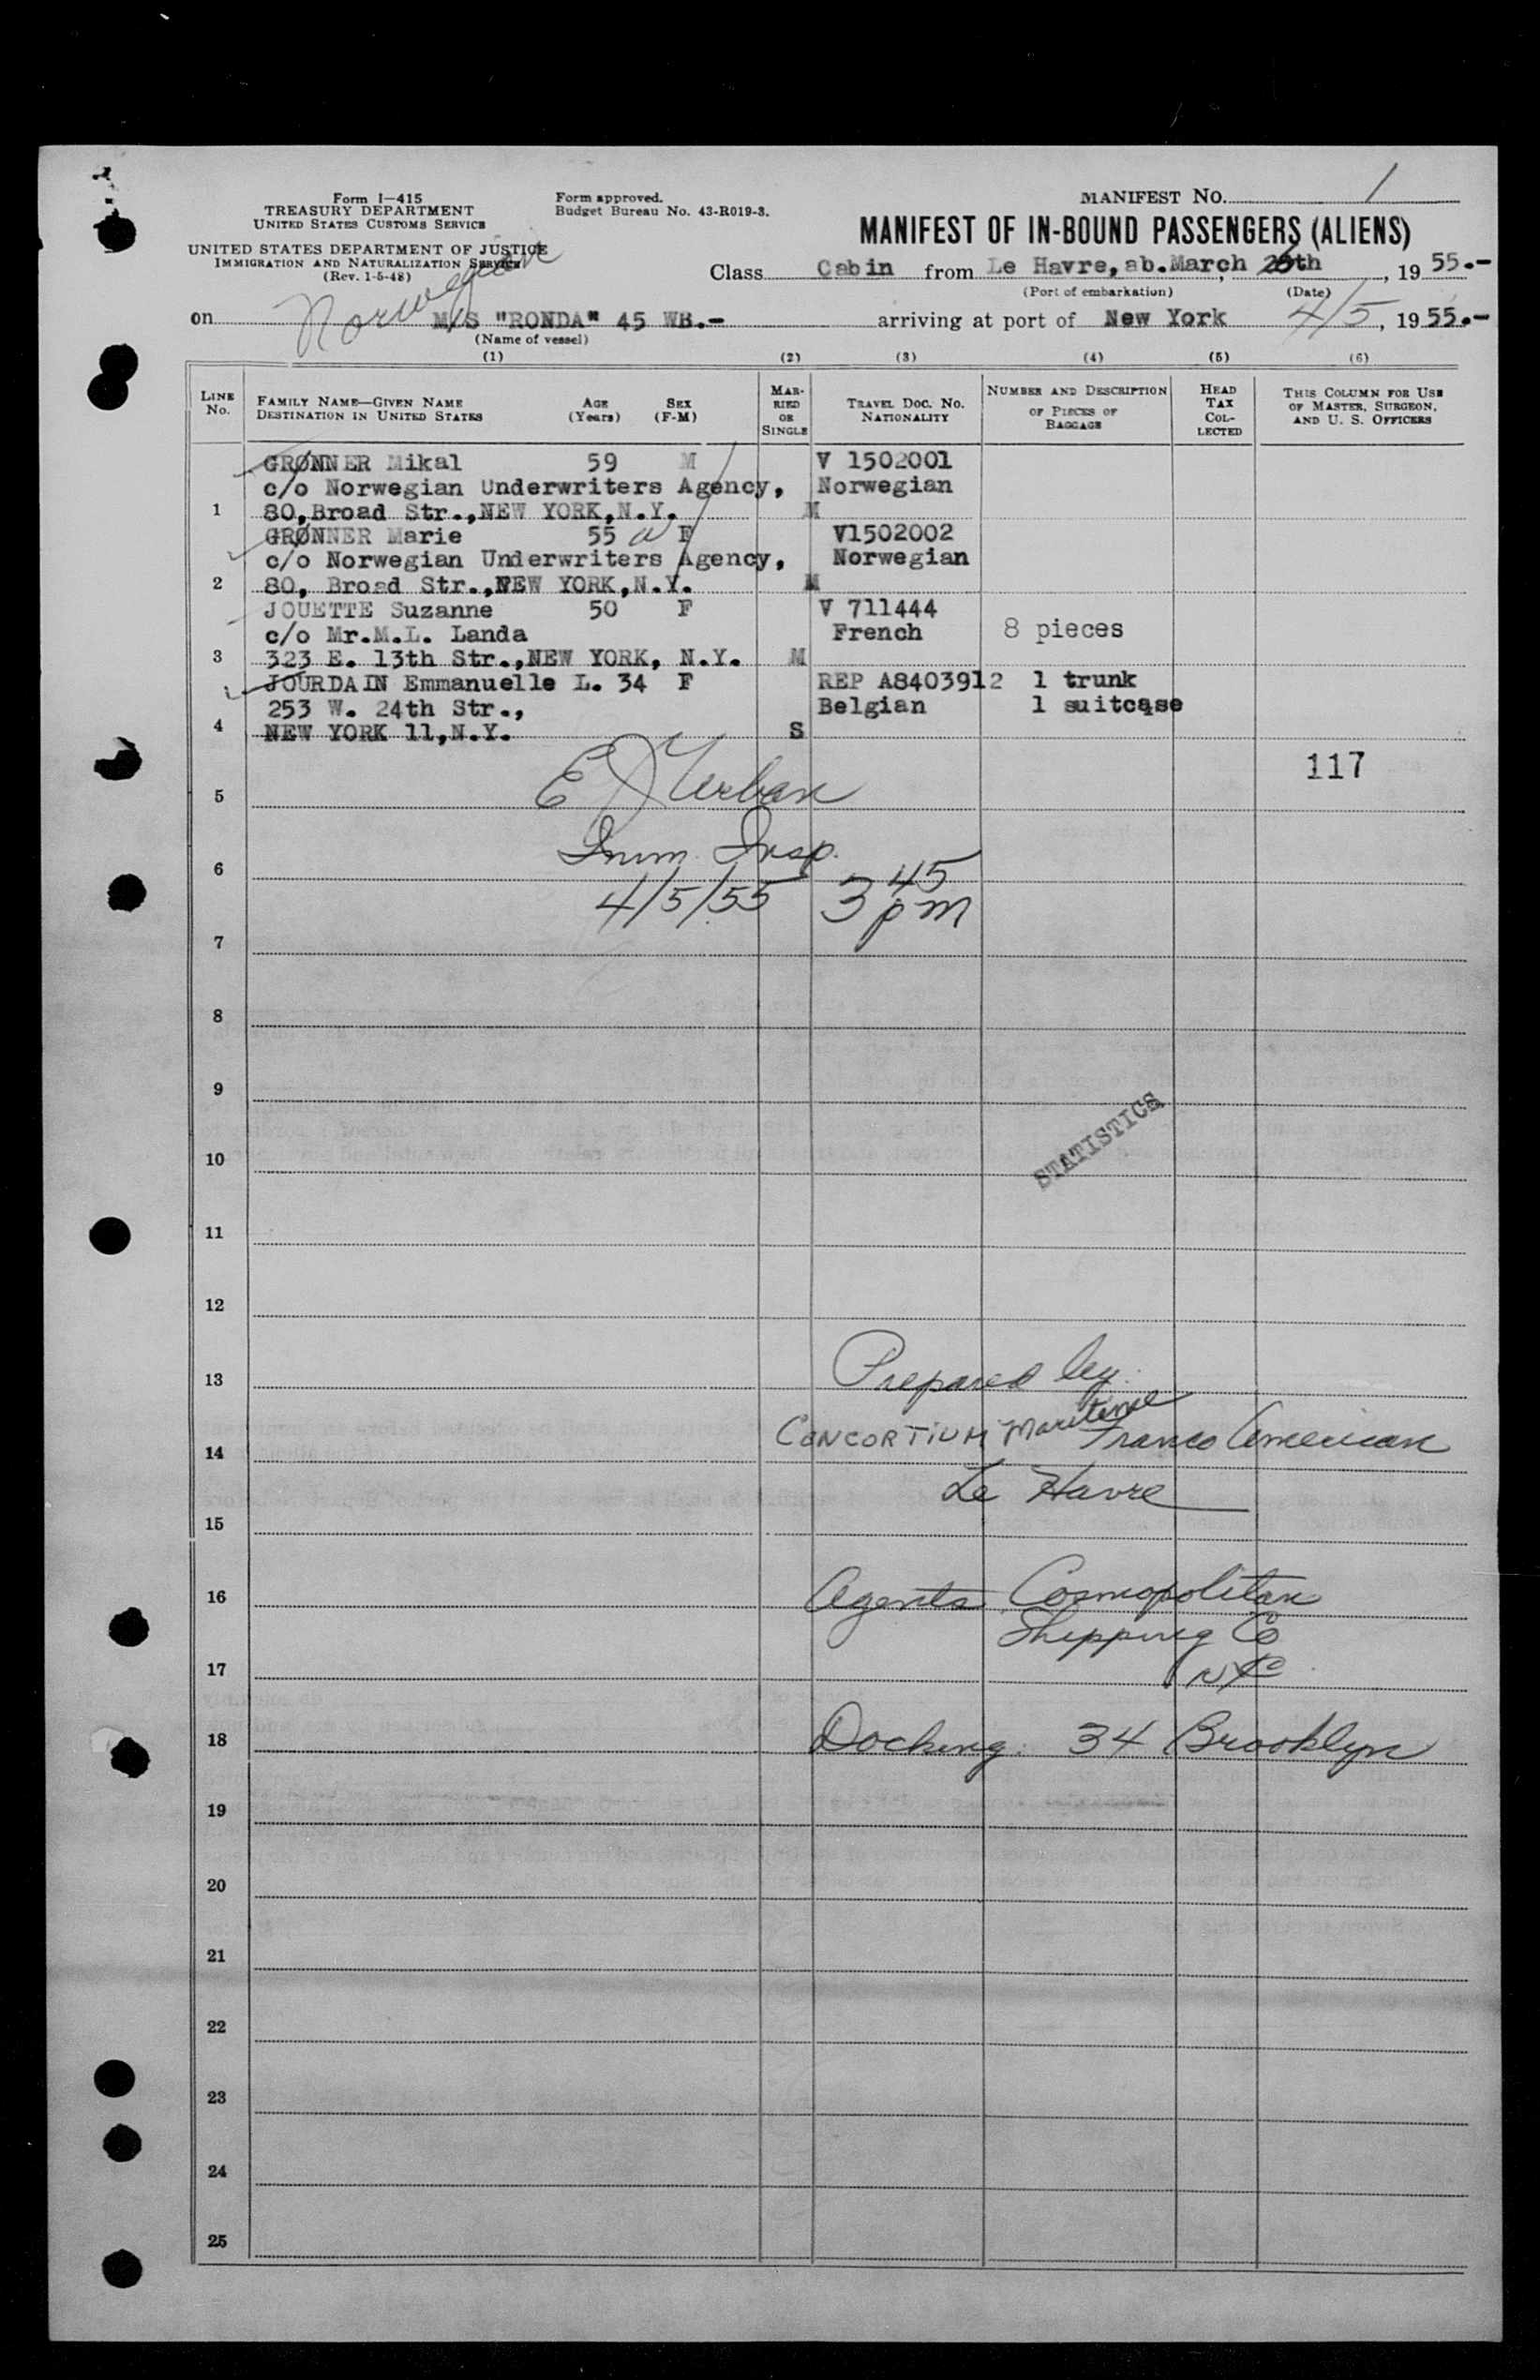 Form I-415
TREASURY DEPARTMENT
UNITED STATES CUSTOMS SERVICE
UNITED STATES DEPARTMENT OF JUSTICE
IMMIGRATION AND NATURALIZATION SERVICE
(Rev. 1-5-48)
Form approved.
Budget Bureau No. 43-R019-3.
MANIFEST NO. 1
MANIFEST OF IN-BOUND PASSENGERS (ALIENS)
Class Cabin from Le Havre, ab. March 26th, 1955.-
(Port of embarkation) (Date)
Norwegian
on M/S "RONDA" 45 WB.- arriving at port of New York 4/5, 1955.-
(Name of vessel)
(1) (2) (3) (4) (5) (6)
LINE No. FAMILY NAME—GIVEN NAME DESTINATION IN UNITED STATES AGE (Years) SEX (F-M) MARRIED OR SINGLE TRAVEL DOC. NO. NATIONALITY NUMBER AND DESCRIPTION OF PIECES OF BAGGAGE HEAD TAX COLLECTED THIS COLUMN FOR USE OF MASTER, SURGEON, AND U. S. OFFICERS
GRØNNER Mikal 59 M V 1502001
c/o Norwegian Underwriters Agency, Norwegian
1 80,Broad Str.,NEW YORK,N.Y. M
GRØNNER Marie 55 F V1502002
c/o Norwegian Underwriters Agency, Norwegian
2 80, Broad Str.,NEW YORK,N.Y. M
JOUETTE Suzanne 50 F V 711444
c/o Mr.M.L. Landa French 8 pieces
3 323 E. 13th Str.,NEW YORK, N.Y. M
JOURDAIN Emmanuelle L. 34 F REP A8403912 1 trunk
253 W. 24th Str., Belgian 1 suitcase
4 NEW YORK 11,N.Y. S
117
5 E J Urban
6 Imm. Insp.
4/5/55 3 45 pm
7
8
9
STATISTICS
10
11
12
13 Prepared by
14 CONCORTIUM Maritime Franco American
Le Havre
15
16 Agents Cosmopolitan
Shipping Co
17 NYC
18 Docking: 34 Brooklyn
19
20
21
22
23
24
25